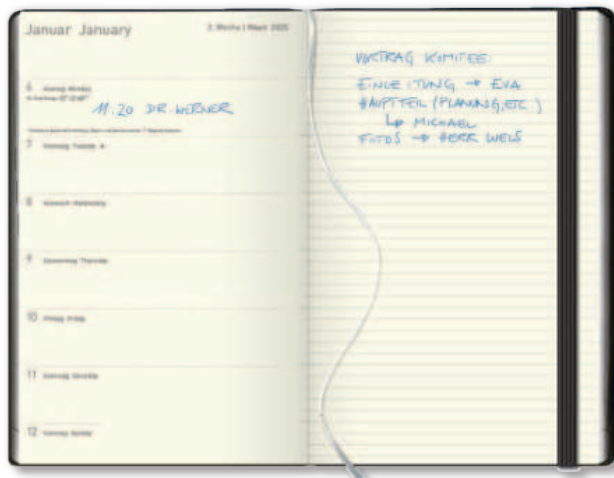 Januar January
2. Woche | Week 2025
6 Montag Monday
11:20 DR. WERNER
7 Dienstag Tuesday
8 Mittwoch Wednesday
9 Donnerstag Thursday
10 Freitag Friday
11 Samstag Saturday
12 Sonntag Sunday
VORTRAG KOMITEE:
EINLEITUNG → EVA
HAUPTTEIL (PLANUNG, ETC.)
↳ MICHAEL
FOTOS → HERR WEIS